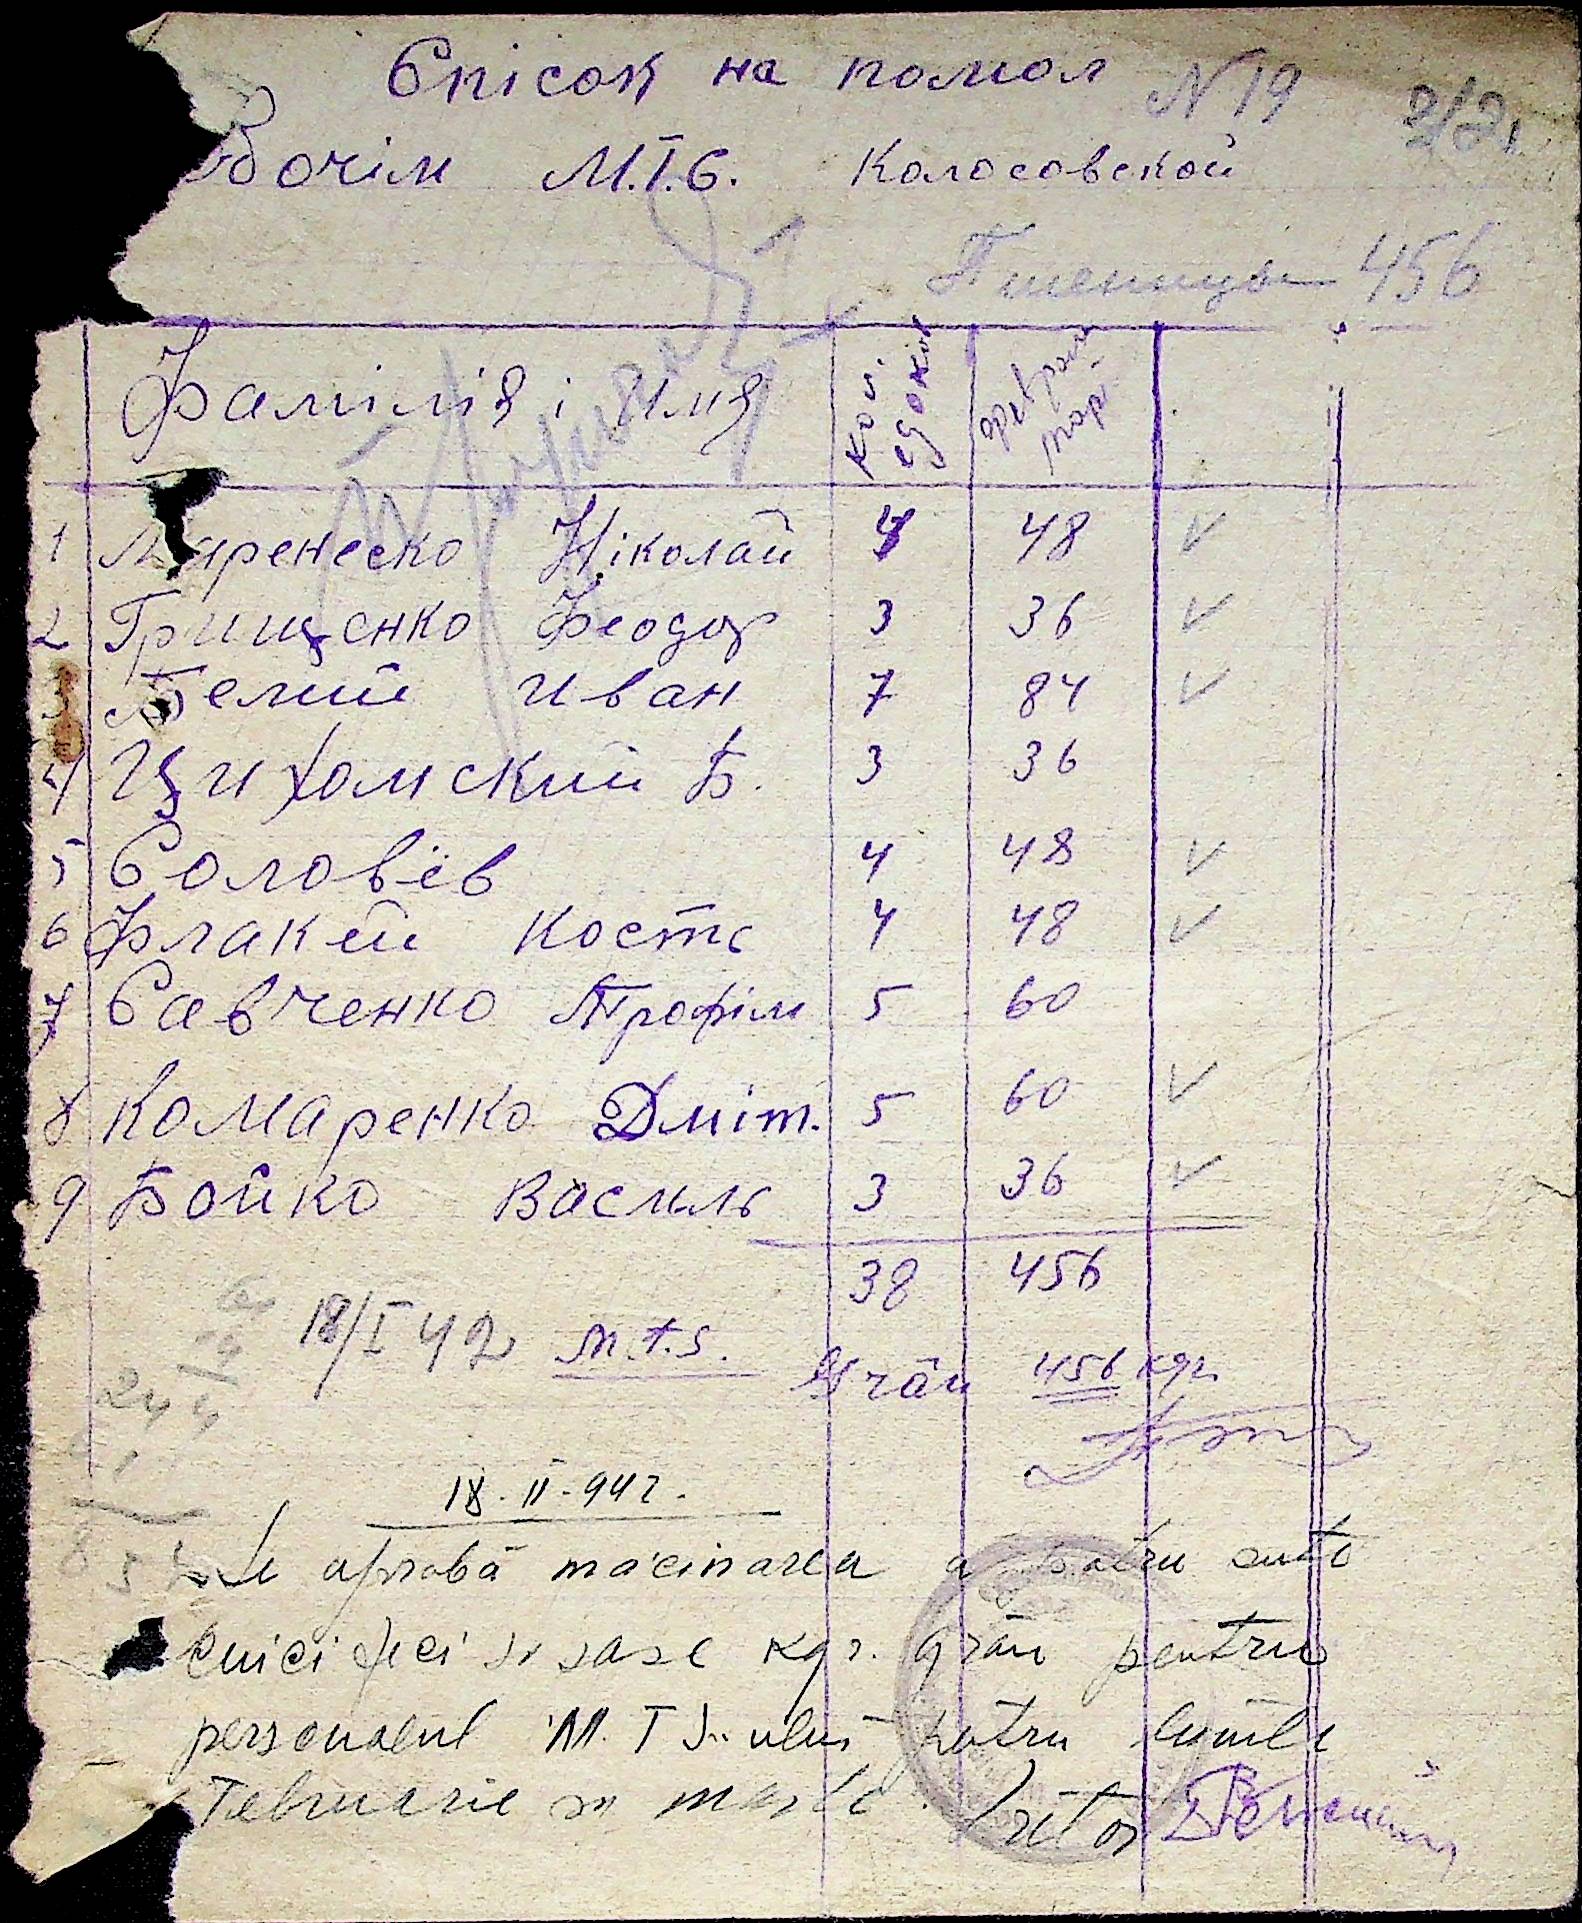 Спісок на помол N 19 2/21
бочім М.Т.С. Колосовской
Пшеницы 456
Фамілія і Имя Кол. едоків феврал март
1 Маренеско Ніколай 4 48 ✓
2 Грищенко Феодор 3 36 ✓
3 Белий Иван 7 84 ✓
4 Цихомский Б. 3 36
5 Соловьёв 4 48 ✓
6 Флакей Кость 4 48 ✓
7 Савченко Трофім 5 60
8 Комаренко Дміт. 5 60 ✓
9 Бойко Василь 3 36 ✓
38 456
18/I 42 m.t.s. Grâu 456 kgr.
18.II.942.
Se aprobă măcinarea a patru sute
cinci zeci si sase kgr. grâu pentru
personalul M.T.S.-ului pentru lunile
Februarie si martie. Pretor